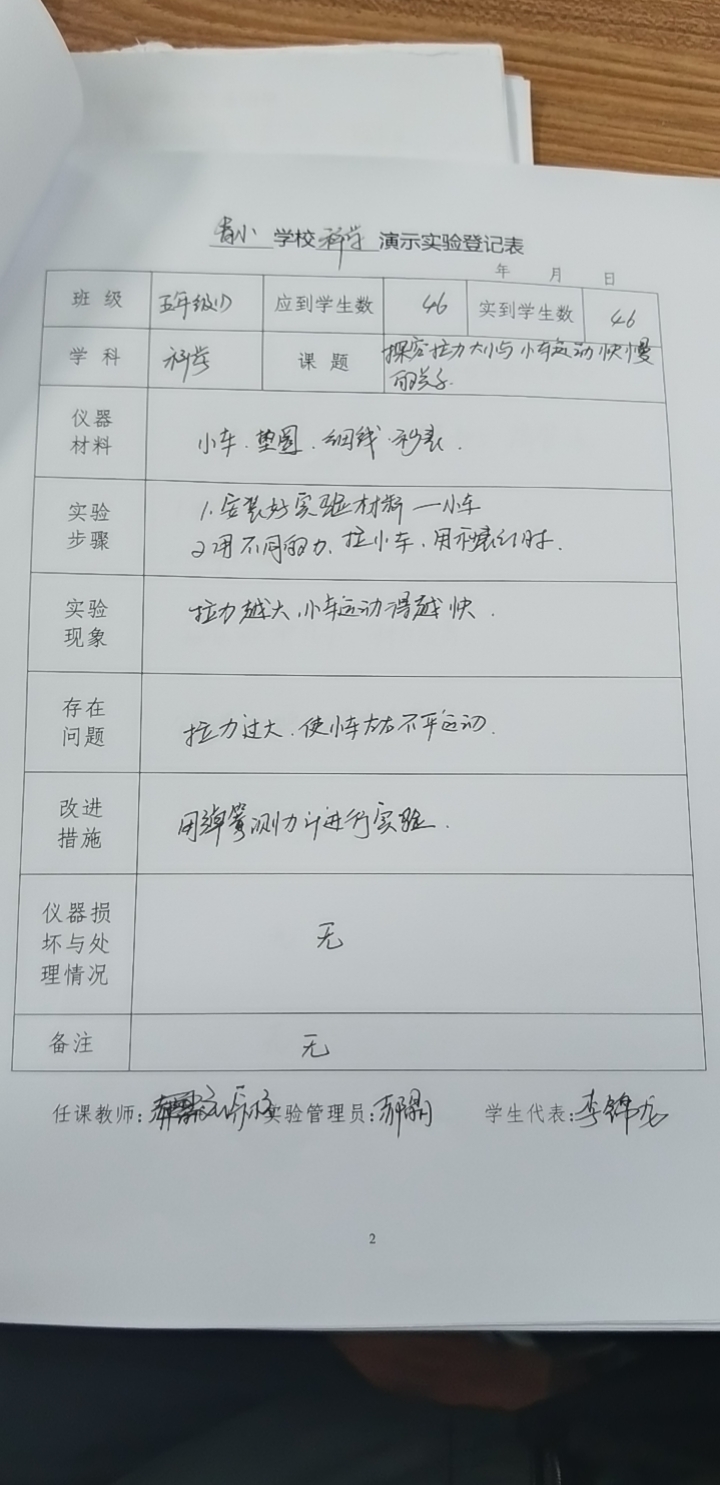 青小 学校 科学 演示实验登记表
年 月 日
班 级 五年级(1) 应到学生数 46 实到学生数 46
学 科 科学 课 题 探究拉力大小与小车运动快慢
的关系.
仪器
材料
小车.垫圈.细线.秒表.
实验
步骤
1.安装好实验材料一小车
2.用不同的力.拉小车.用秒表计时.
实验
现象
拉力越大.小车运动得越快.
存在
问题
拉力过大.使小车左右不平运动.
改进
措施
用弹簧测力计进行实验.
仪器损
坏与处
理情况
无
备注 无
任课教师: 实验管理员: 学生代表:李锦龙
2